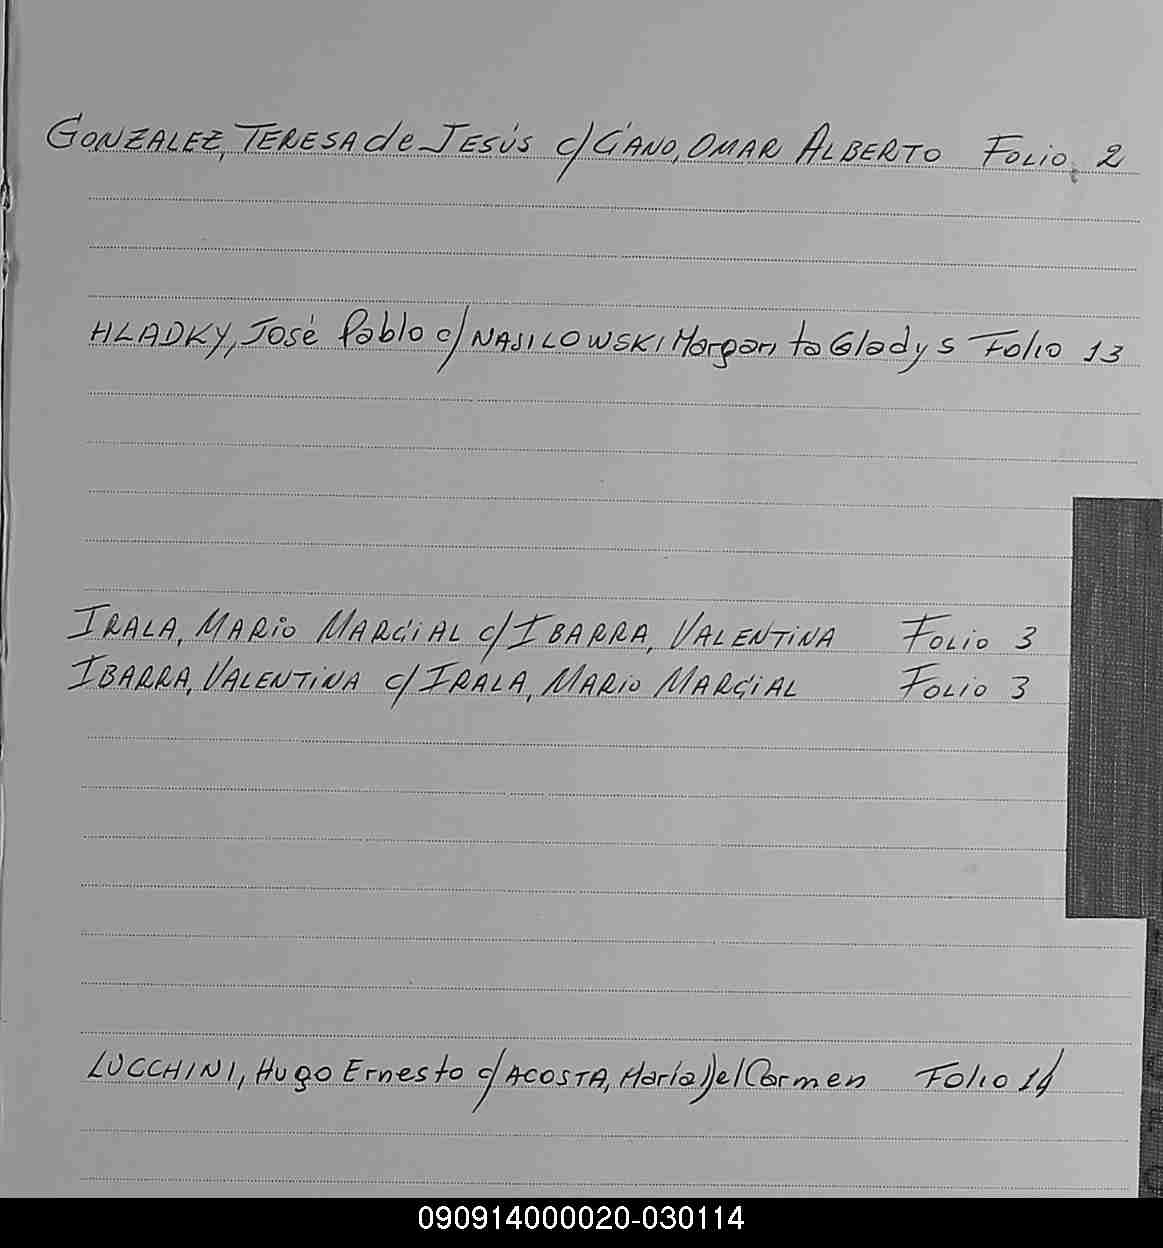 GONZALEZ, TERESA de JESÚS c/ CANO, OMAR ALBERTO FOLIO 2
HLADKY, José Pablo c/ NASILOWSKI Margarita Gladys Folio 13
IRALA, MARIO MARCIAL c/ IBARRA, VALENTINA FOLIO 3
IBARRA, VALENTINA c/ IRALA, MARIO MARCIAL FOLIO 3
LUCCHINI, Hugo Ernesto c/ ACOSTA, María Del Carmen Folio 14
090914000020-030114